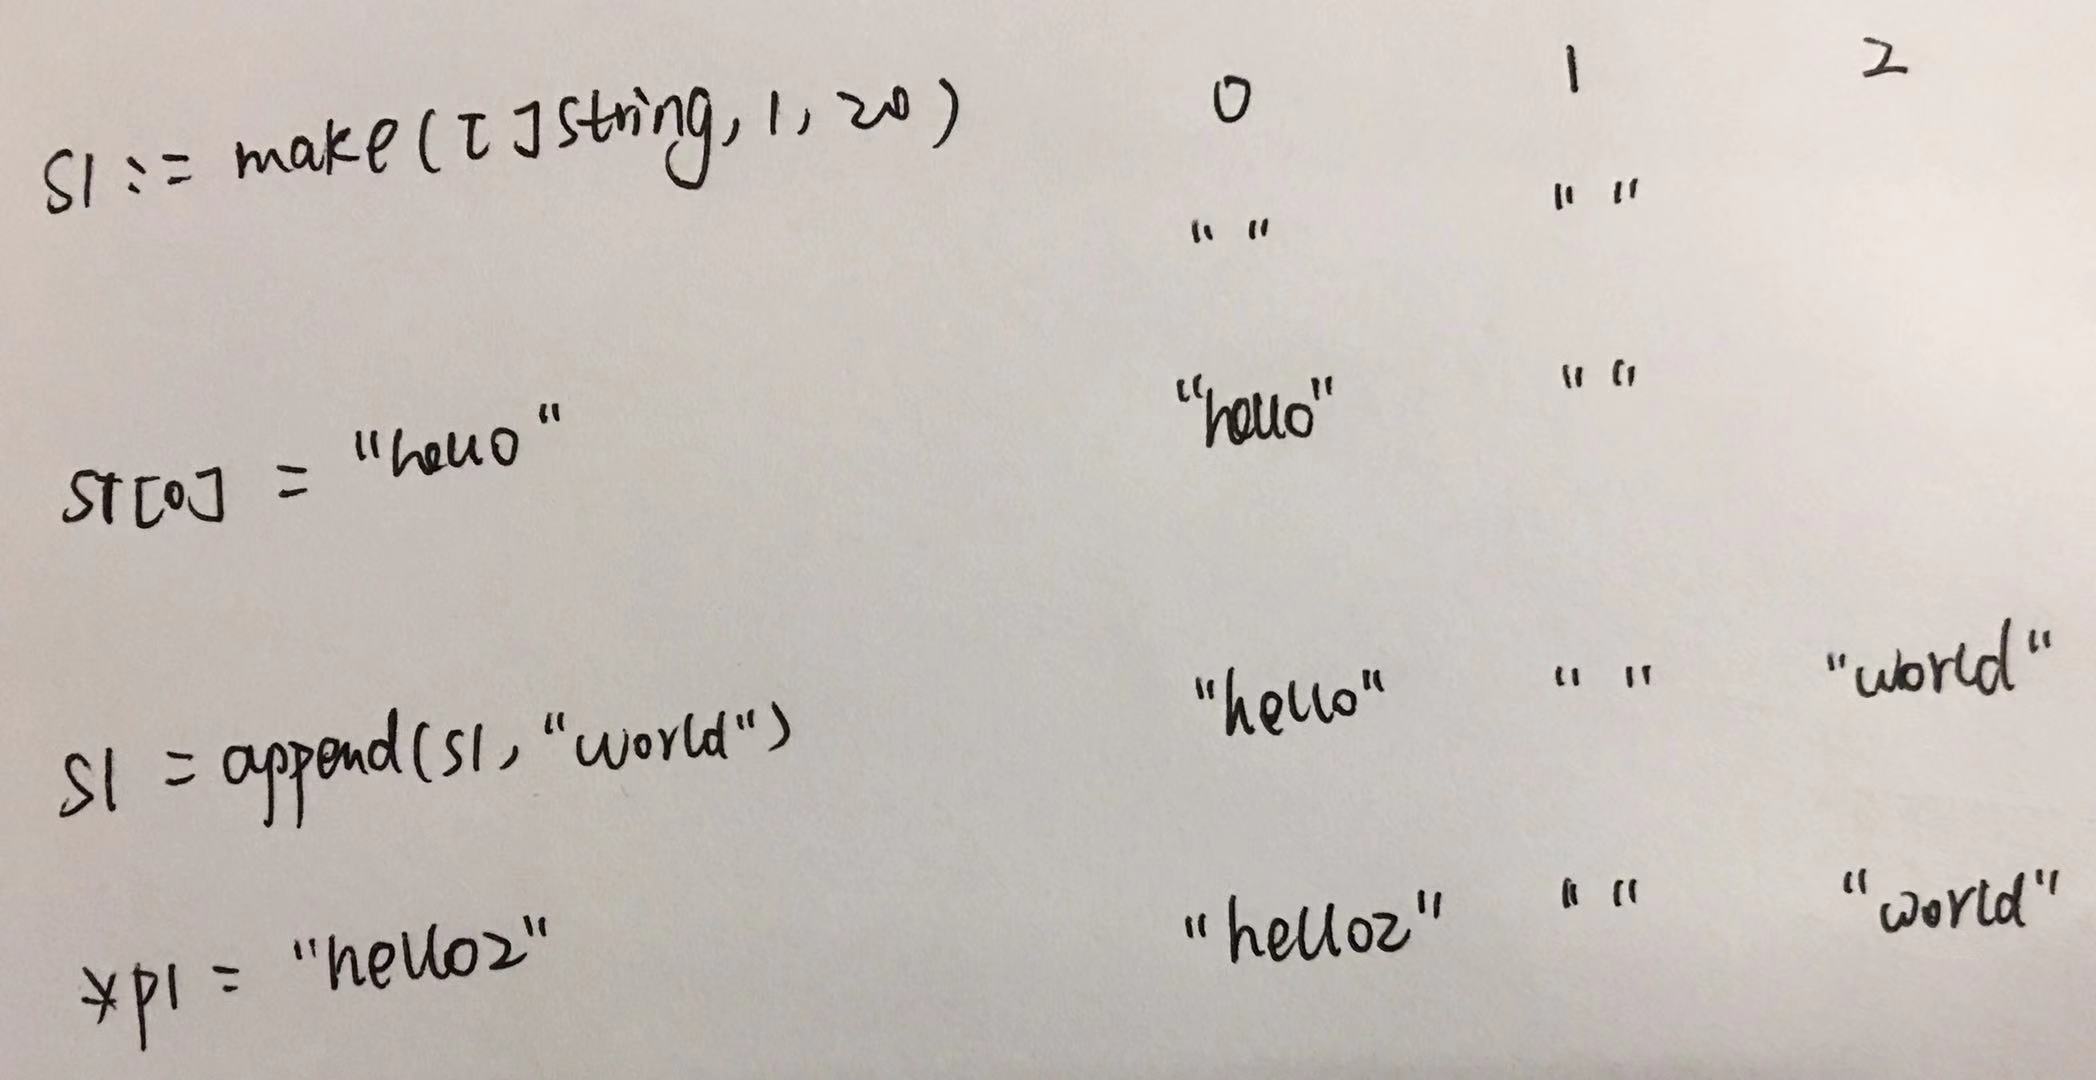 S1 := make([]string, 1, 20) 0 1 2
"" ""
S1[0] = "hello" "hello" ""
S1 = append(S1, "world") "hello" "" "world"
*p1 = "hello2" "hello2" "" "world"